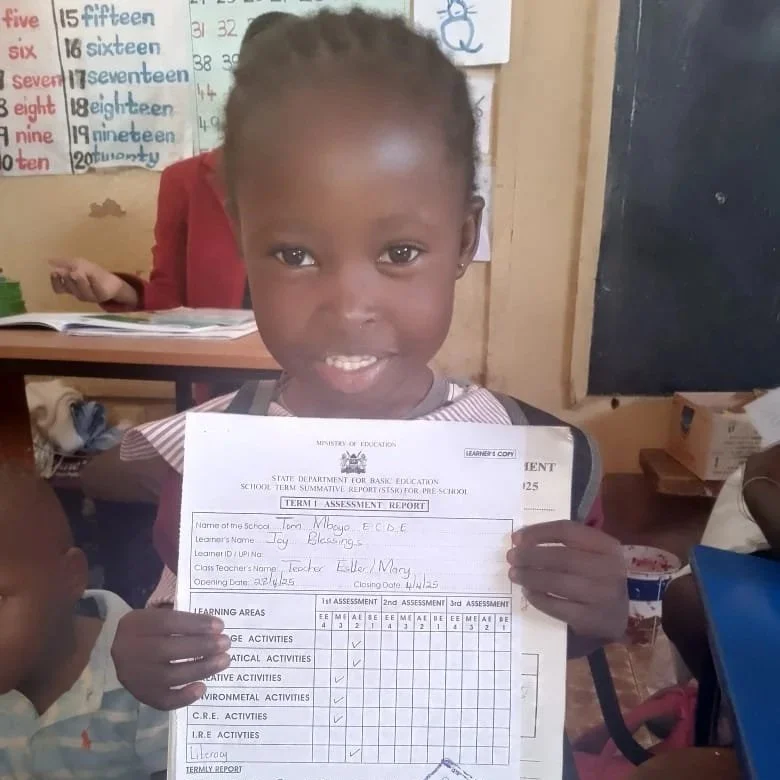 five
six
seven
8 eight
9 nine
10 ten
15 fifteen
16 sixteen
17 seventeen
18 eighteen
19 nineteen
20 twenty
31 32
38 39
44
MINISTRY OF EDUCATION
LEARNER'S COPY
STATE DEPARTMENT FOR BASIC EDUCATION
SCHOOL TERM SUMMATIVE REPORT (STSR) FOR PRE-SCHOOL
TERM 1 ASSESSMENT REPORT
Name of the School Tom Mboya E.C.D.E
Learner's Name Joy Blessings
Learner ID / UPI No:
Class Teacher's Name: Teacher Esther/Mary
Opening Date: 28/4/25 Closing Date: 4/4/25
LEARNING AREAS
1st ASSESSMENT 2nd ASSESSMENT 3rd ASSESSMENT
EE ME AE BE EE ME AE BE EE ME AE BE
4 3 2 1 4 3 2 1 4 3 2 1
GE ACTIVITIES ✓
ATICAL ACTIVITIES ✓
ATIVE ACTIVITIES ✓
VIRONMETAL ACTIVITIES ✓
C.R.E. ACTIVTIES ✓
I.R.E ACTIVITIES
Literacy ✓
TERMLY REPORT
MENT
2025